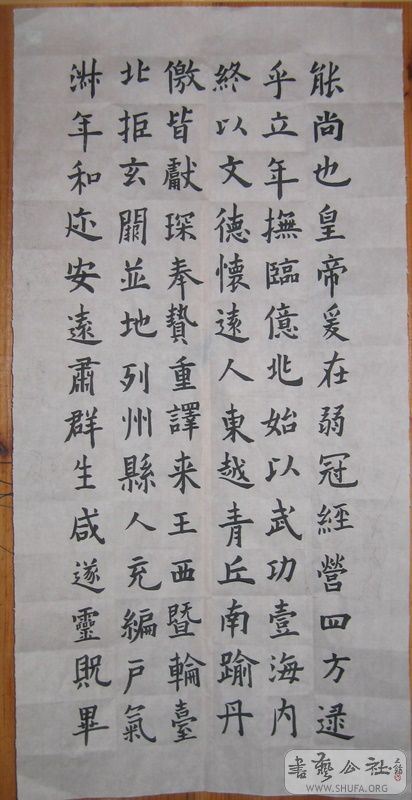 能尚也皇帝爰在弱冠經營四方逮
乎立年撫臨億兆始以武功壹海内
終以文德懷遠人東越青丘南踰丹
儌皆獻琛奉贄重譯来王西暨輪臺
北拒玄闕並地列州縣人充編戶氣
淑年和迩安遠肅群生咸遂靈貺畢
書藝公社
WWW.SHUFA.ORG